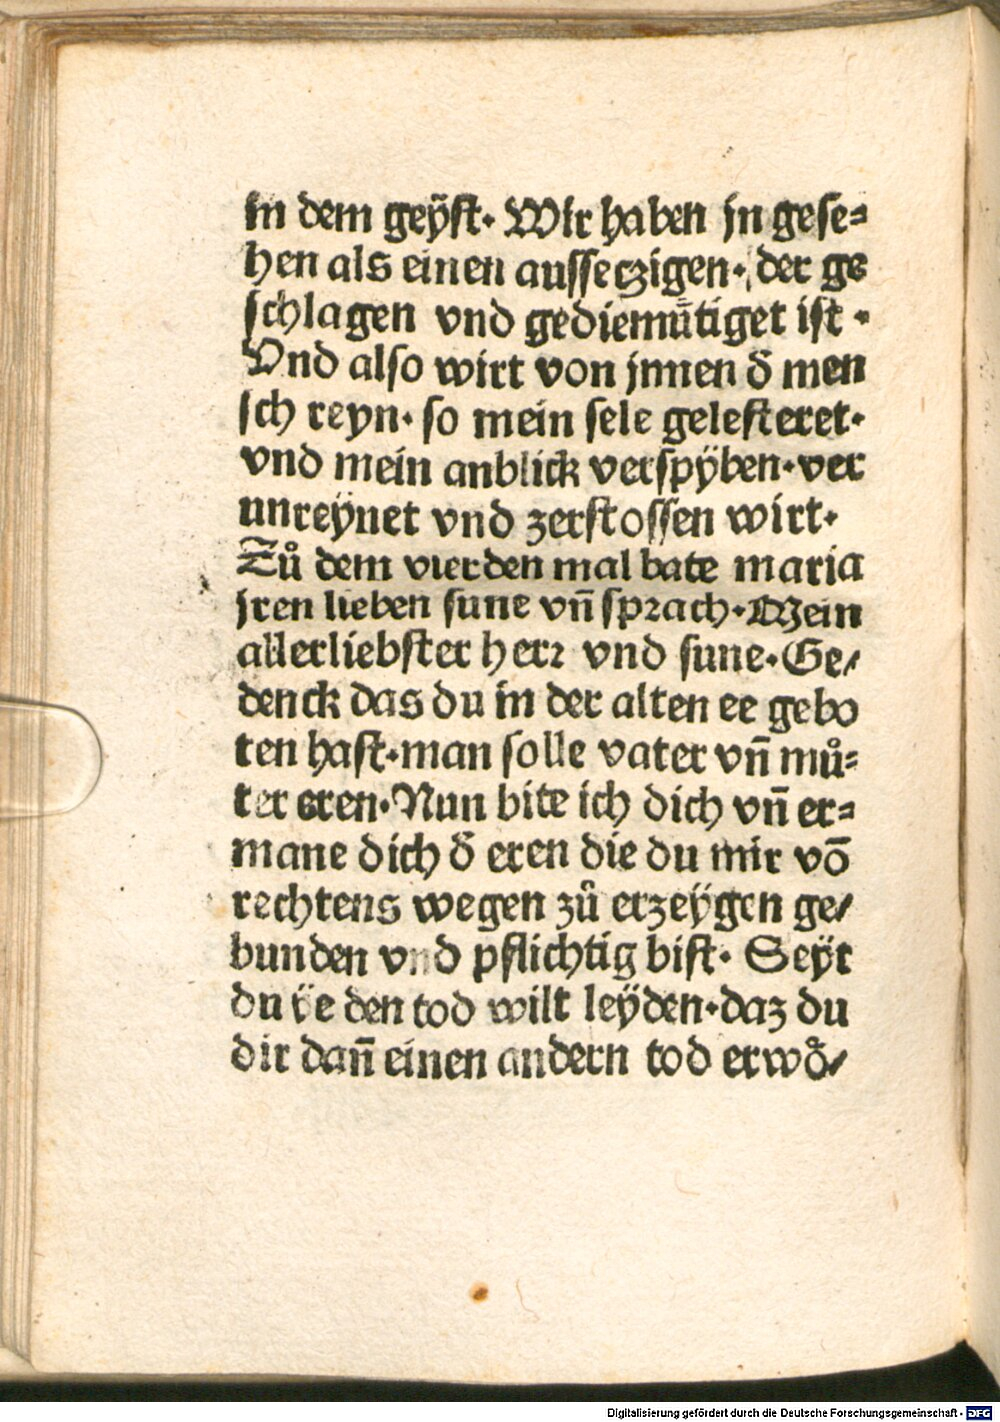 in dem geÿst· Wir haben jn gese⸗
hen als einen aussetzigen· der ge
schlagen vnd gediemütiget ist ·
Vnd also wirt von jnnen d̄ men
sch reyn· so mein sele gelesteret·
vnd mein anblick verspÿben·ver
unreÿnet vnd zerstossen wirt·
Zů dem vierden mal bate maria
jren lieben sune vn̄ sprach·Mein
allerliebster herr vnd sune·Ge/
denck das du in der alten ee gebo
ten hast·man solle vater vn̄ mů⸗
ter eren·Nun bite ich dich vn̄ er⸗
mane dich d̄ eren die du mir vō
rechtens wegen zů erzeÿgen ge/
bunden vnd pflichtig bist· Seÿt
du ÿe den tod wilt leÿden·daz du
dir dan̄ einen andern tod erwoͤ/
Digitalisierung gefördert durch die Deutsche Forschungsgemeinschaft - DFG